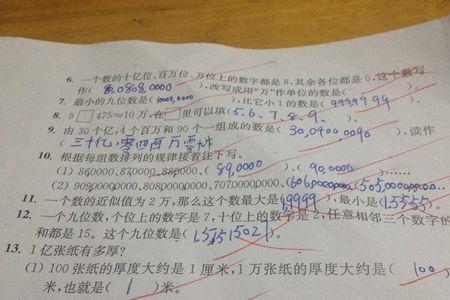 6. 一个数的十亿位、百万位、万位上的数字都是8,其余各位都是0,这个数写
作( 80808,0000 ),改写成用"万"作单位的数是( )。
7. 最小的九位数是( 10000,0000 ),比它小1的数是( 99999999 )。
8. 9□475≈10万,在□里可以填( 5、6、7、8、9、 )。
9. 由30个亿,4个百万和90个一组成的数是( 30,0400,0090 ),读作
( 三十亿,零四百万零九十 )
10. 根据每组数排列的规律接着往下写。
(1) 860000,870000,880000,( 89,0000 )、( 90,0000 )……
(2) 9090000000,8080000000,7070000000,
11. 一个数的近似值为2万,那么这个数最大是( 19999 ),最小是( 15555 )。
12. 一个九位数,个位上的数字是7,十位上的数字是2,任意相邻三个数字的
和都是15。这个九位数是( )
13. 1亿张纸有多厚?
(1) 100张纸的厚度大约是1厘米,1万张纸的厚度大约是( 100
米,也就是( 1 )米。